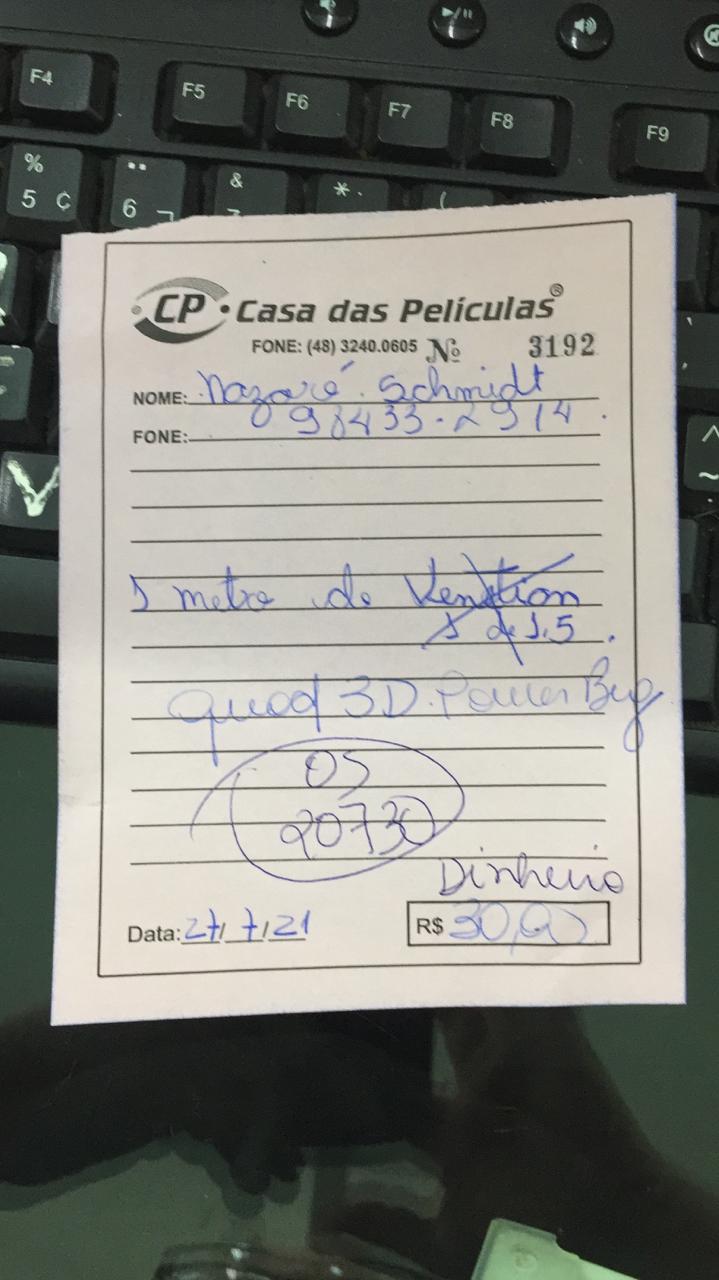 F4 F5 F6 F7 F8 F9
% & * (
5 ¢ 6 ¬
CP Casa das Películas®
FONE: (48) 3240.0605 Nº 3192
NOME: Nazaré Schmidt
98433-2914
FONE:
1 metro de Venction
1 de 1.5
quod 3D. Power Bug
OS
20730
Dinheiro
Data: 27/7/21 R$ 30,00